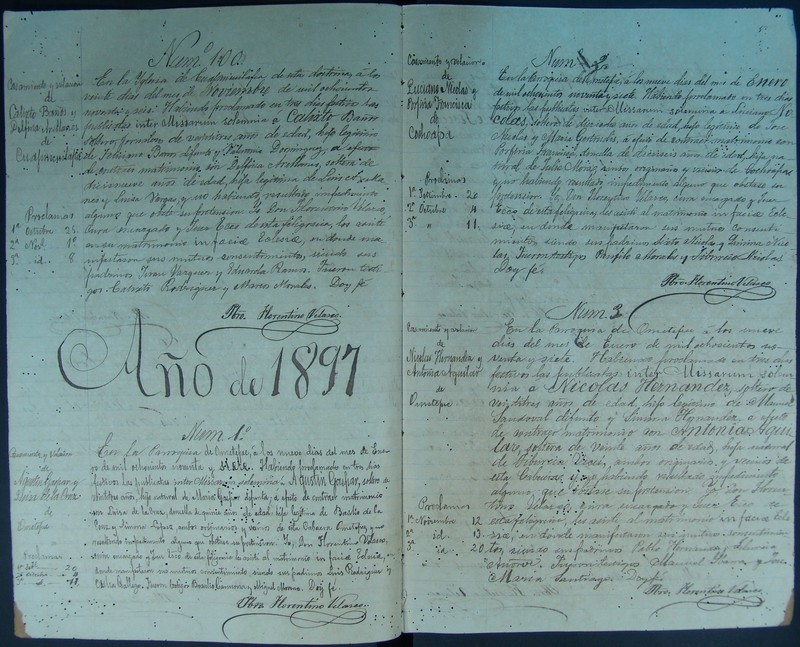 Num. 120.
Casamiento y velacion
de
Calisto Baños y
Delfina Arellanes
de
En la Yglesia de de esta doctrina, á los
veinte dias del mes de Noviembre de mil ochocientos
noventa y seis. Habiendo proclamado en tres dias festivos las
publicatas inter Missarum solemnia á Calisto Baños
soltero de años de edad, hijo legitimo
de Baños difunto y Dominguez, á efecto
de contraer matrimonio con Delfina Arellanes, soltera de
diecinueve años de edad, hija legitima de Luis Arella-
nes y Luisa Vargas, y no habiendo resultado impedimento
alguno que obste su pretension Yo Don Florentino Velasco
Cura encargado y Juez Eco de esta feligrecia, los asistí
en su matrimonio in facie Eclecie, en donde ma-
nifestaron sus mutuos consentimientos, siendo sus
padrinos Juan Vasquez y Eduarda Ramos. Fueron testi-
gos Calisto Rodriguez y Marcos Morales. Doy fé
Proclamas
1ª Octubre 25
2ª Nov. 1º
3ª id. 8
Pbro. Florentino Velasco.
Año de 1897
Num 1º
Casamiento y velacion
de
Agustin Gaspar y
Luisa de la Cruz
de
Ometepec
En la Parroquia de Ometepec, á los nueve dias del mes de Ene-
ro de mil ochocientos noventa y siete. Habiendo proclamado en tres dias
festivos las publicatas inter Missarum solemnia á Agustin Gaspar, soltero de
años de edad, hijo natural de Maria Gaspar difunta, á efecto de contraer matrimonio
con Luisa de la Cruz, doncella de quince años de edad, hija legitima de Basilio de la
Cruz y Simona Lopez, ambos originarios y vecinos de esta Cabecera Ometepec, y no
resultando impedimento alguno que obste su pretension. Yo, Don Florentino Velasco,
Cura encargado y Juez Eco de esta feligrecia los asistí al matrimonio in facie Eclecie,
donde manifestaron sus mutuos consentimientos, siendo sus padrinos Luis Rodriguez y
Fueron testigos Basilio y Miguel Moreno. Doy fé.
Proclamas
20
11
Pbro. Florentino Velasco.
Num 2.
Casamiento y velacion
de
Luciano Nicolas y
Porfiria Francisca
de
Cochoapa
En la Parroquia de Ometepec á los nueve dias del mes de Enero
de mil ochocientos noventa y siete. Habiendo proclamado en tres dias
festivos las publicatas inter Missarum solemnia á Luciano Ni-
colas, soltero de años de edad, hijo legitimo de José
Nicolas y Maria Gertrudis, á efecto de contraer matrimonio con
Porfiria Francisca, doncella de dieciseis años de edad, hija na-
tural de Julia ambos originarios y vecinos de Cochoapa
y no habiendo resultado impedimento alguno que obstase su
pretension Yo, Don Florentino Velasco, Cura encargado y Juez
Eco de esta feligrecia, los asistí al matrimonio in facie Ecle-
sie, en donde manifestaron sus mutuos consenti-
mientos, siendo sus padrinos Sisto Nicolas y Nico-
las, Fueron testigos Panfilo Morales y Fabricio Nicolas
Doy fé.
Proclamas
1ª Setiembre 20
2ª Octubre 4
3ª " 11
Pbro. Florentino Velasco.
Num. 3
Casamiento y velacion
de
Nicolas Hernandez y
Antonia Aguilar
de
Ometepec
En la Parroquia de Ometepec á los nueve
dias del mes de Enero de mil ochocientos no-
venta y siete. Habiendo proclamado en tres dias
festivos las publicatas inter Missarum solem-
nia á Nicolas Hernandez, soltero de
veintitres años de edad, hijo legitimo de Manuel
Sandoval difunto y Simona Hernandez, á efecto
de contraer matrimonio con Antonia Agui-
lar, soltera de veinte años de edad, hija natural
de Tiburcia ambos originarios y vecinos de
esta Cabecera, y no habiendo resultado impedimento
alguno que obstase su pretension, yo Don Floren-
tino Velasco, Cura encargado y Juez Eco de
esta feligrecia, los asistí al matrimonio in facie Ecle-
sie, en donde manifestaron sus mutuos consentimien-
tos, siendo sus padrinos Pablo Hernandez y
Fueron testigos Manuel y José
Maria Santiago. Doy fé
Proclamas
1ª Noviembre 12
2ª id. 13
3ª id. 20
Pbro. Florentino Velasco.